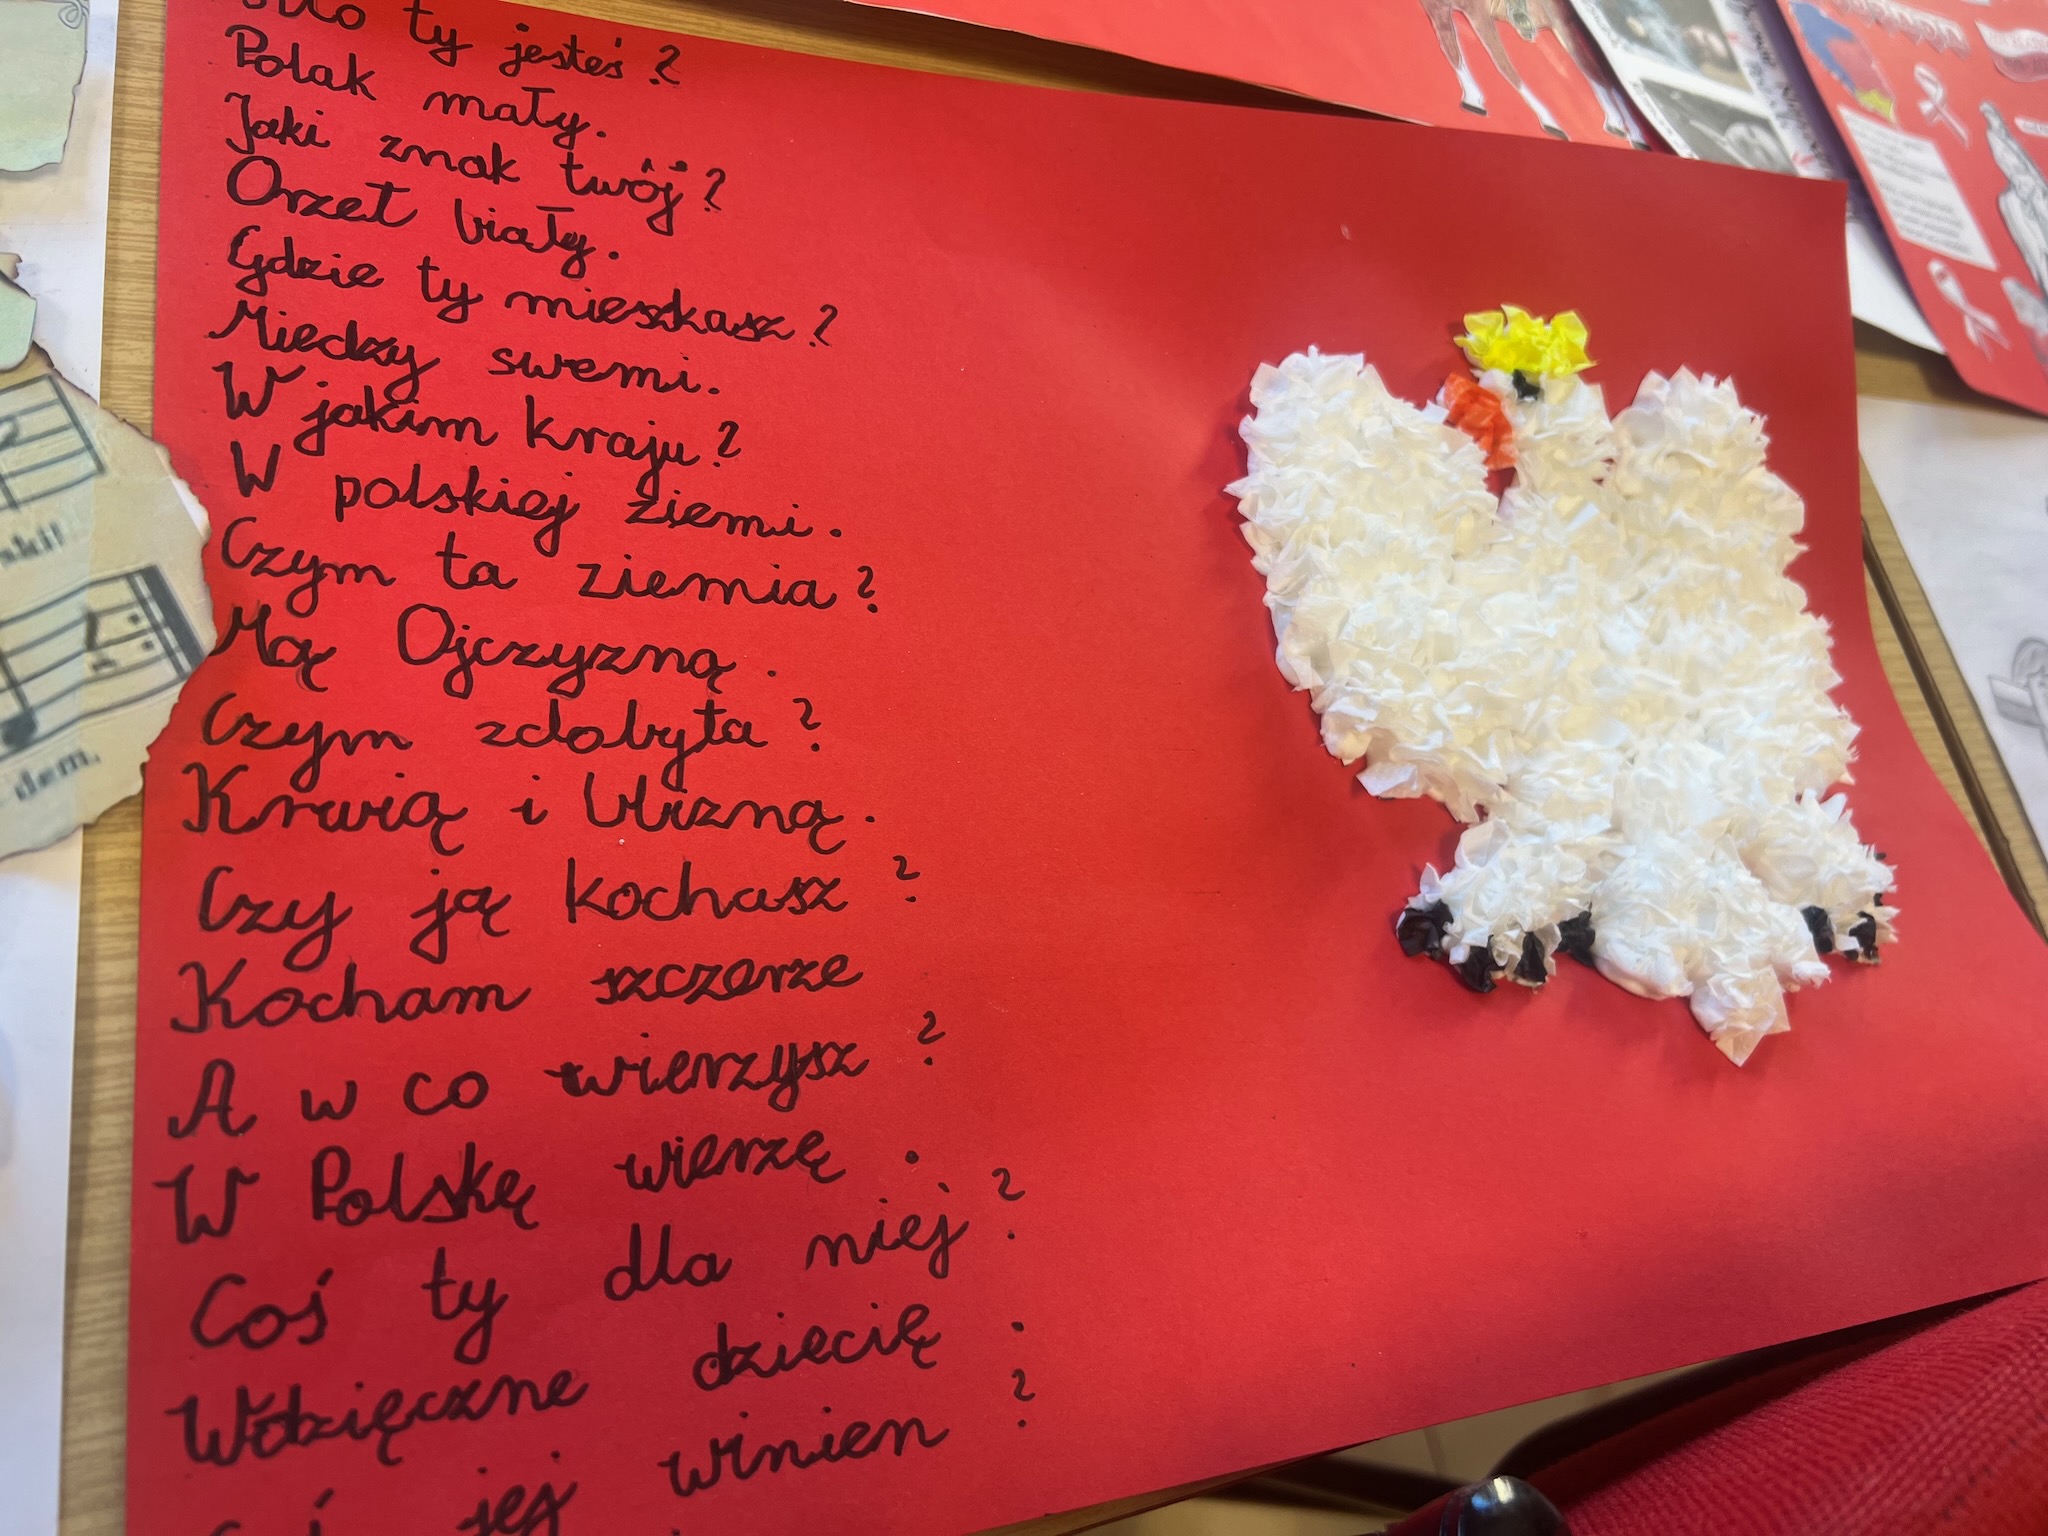 Kto ty jesteś?
Polak mały.
Jaki znak twój?
Orzeł biały.
Gdzie ty mieszkasz?
Miedzy swemi.
W jakim kraju?
W polskiej ziemi.
Czym ta ziemia?
Mą Ojczyzną.
Czym zdobyta?
Krwią i blizną.
Czy ją kochasz?
Kocham szczerze
A w co wierzysz?
W Polskę wierzę.
Coś ty dla niej?
Wdzięczne dziecię.
Coś jej winien?
dem.